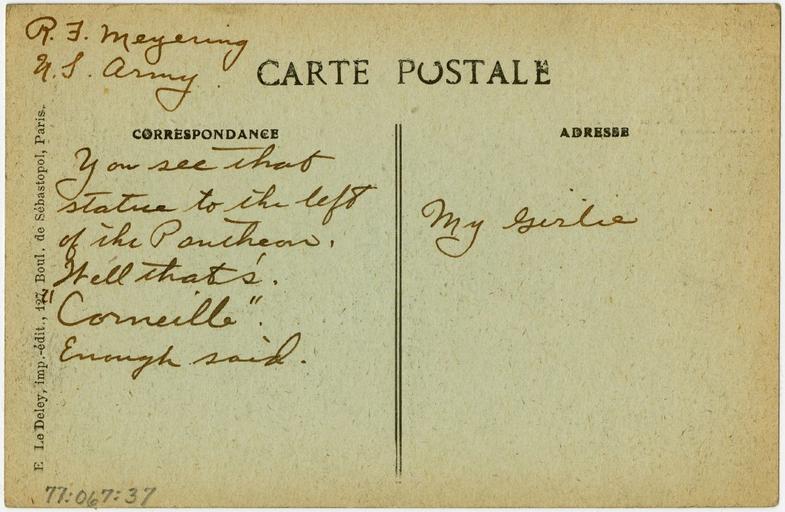 R. F. Meyering
U.S. Army
CARTE POSTALE
CORRESPONDANCE
ADRESSE
You see that
statue to the left
of the Pantheon.
Well that's.
"Corneille".
Enough said.
My Girlie
E Le Deley, imp.-édit., 127, Boul. de Sébastopol, Paris.
77:067:37